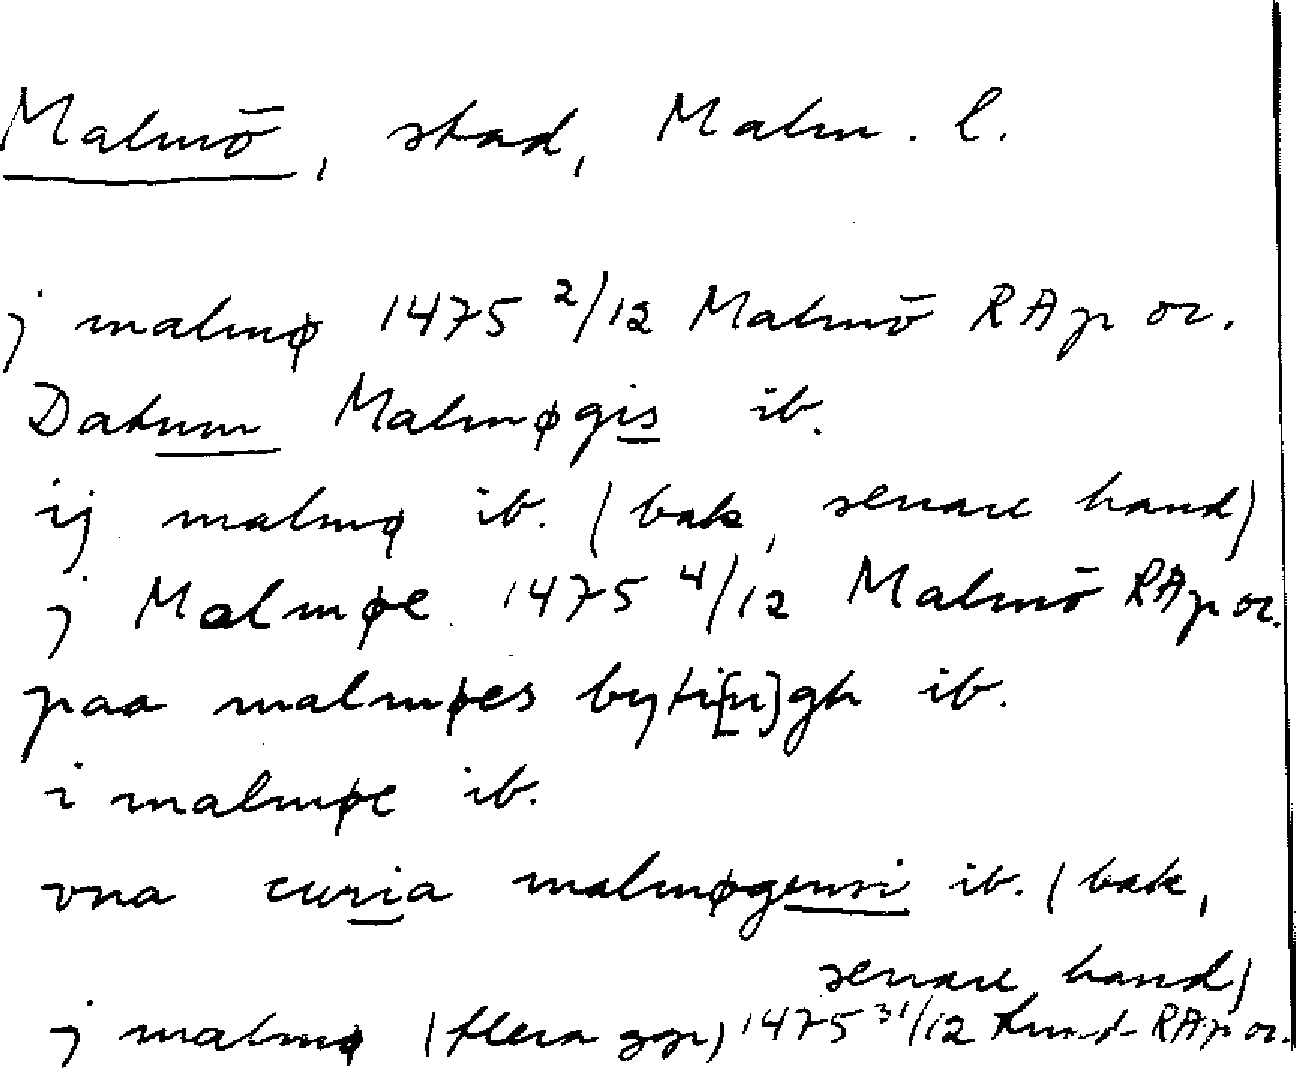 Malmö, stad, Malm. l.
j malmø 1475 2/12 Malmö RAp or.
Datum Malmøgis ib.
ij malmø ib. (bak, senare hand)
j Malmøe 1475 4/12 Malmö RAp or.
paa malmøes byti[n]gh ib.
i malmøe ib.
vna curia malmøgensi ib. (bak,
senare hand)
j malmø (flera ggr) 1475 31/12 Lund RAp or.